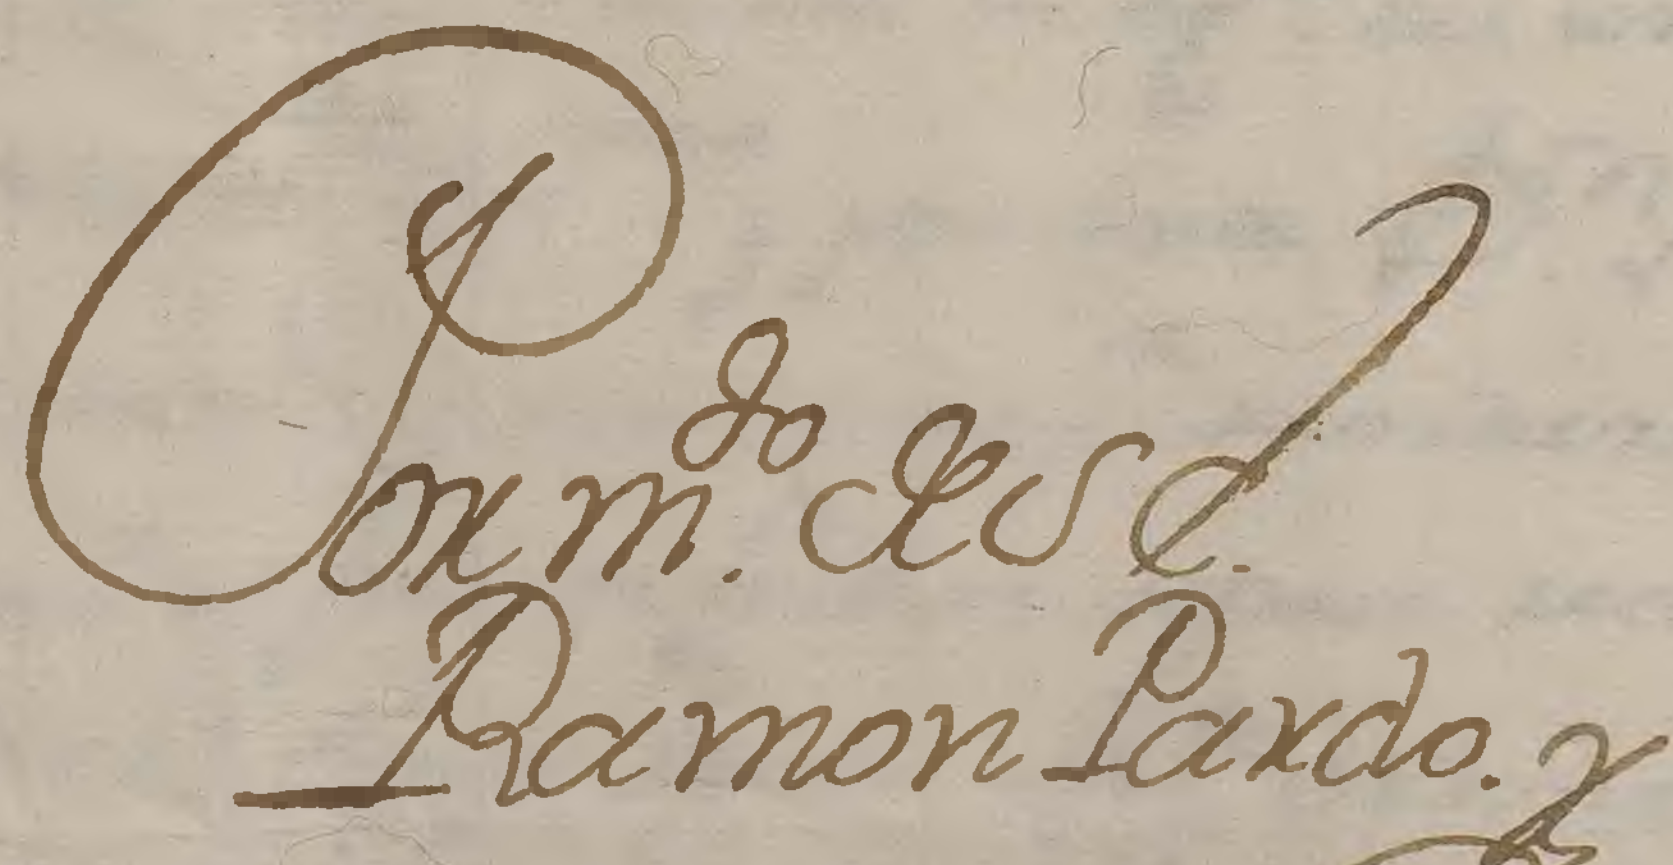 Por m.do de S E.
Ramon Pardo.